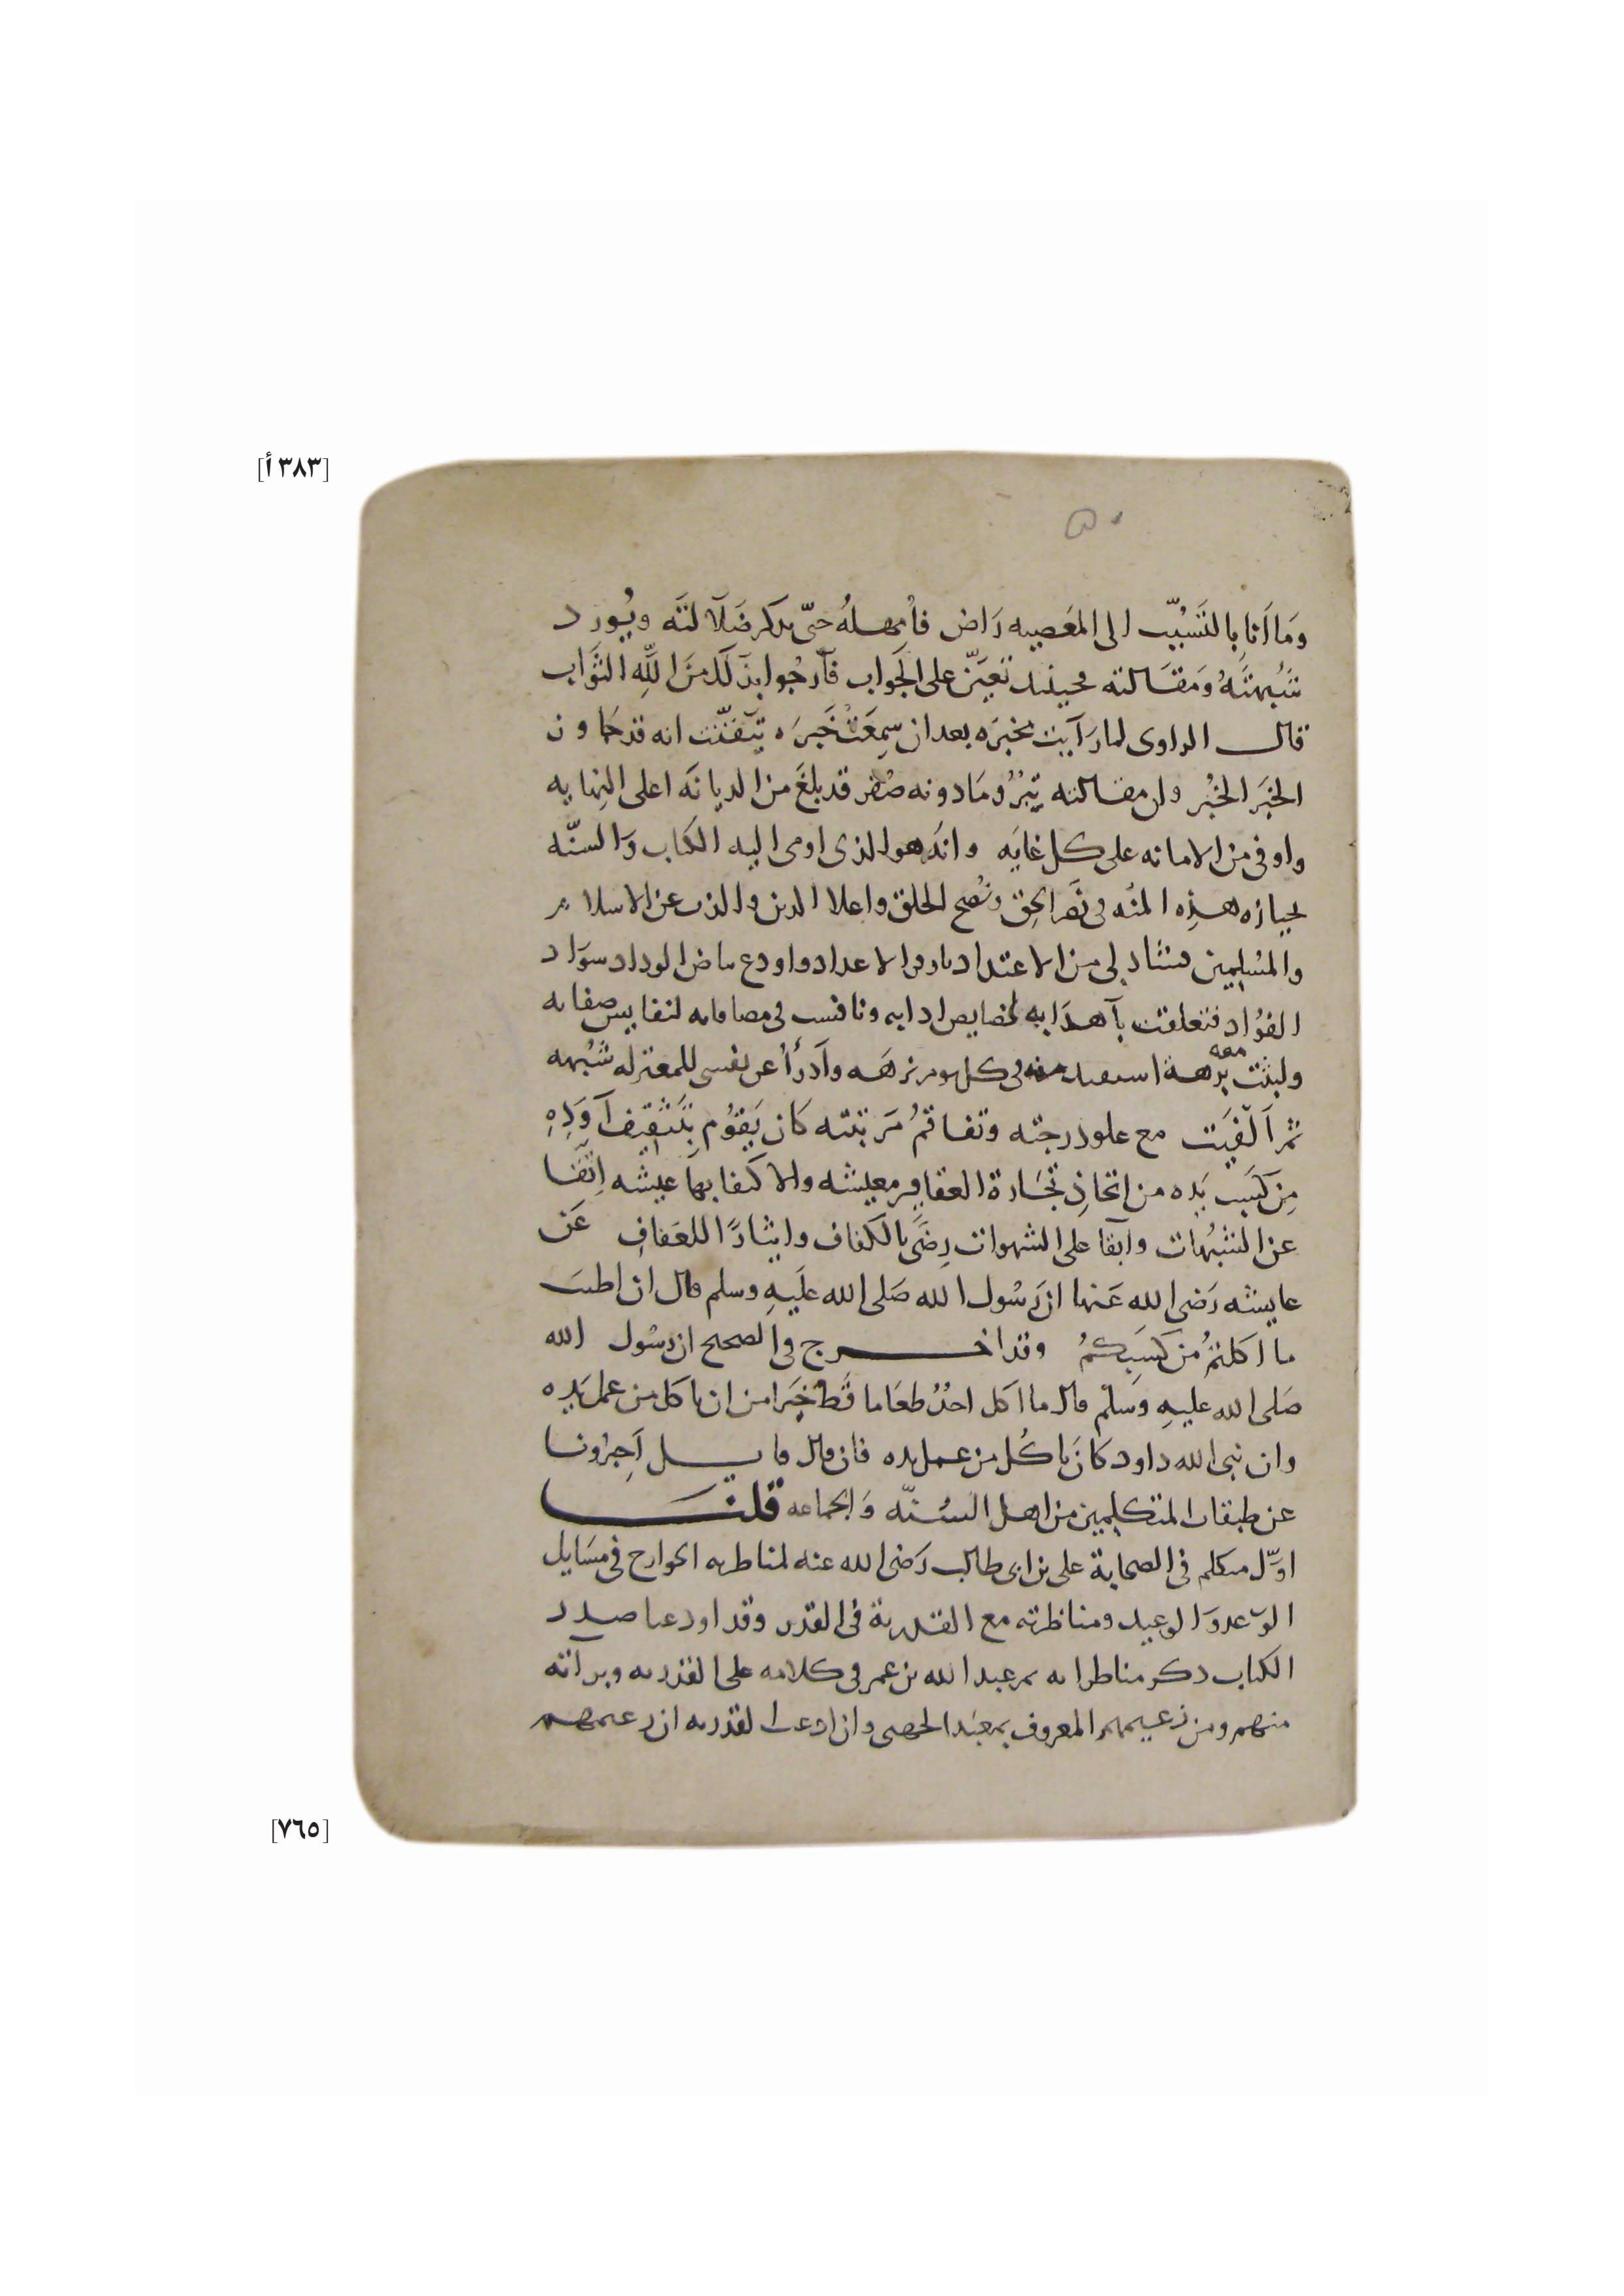 [٣٨٣ أ]
٥٠
وَمَا أنَا بِالتَسَبُّب الى المعَصِيه رَاض فأُمهلهُ حتّى يذكر ضَلَالتَه ويُورد
شُبهتَهُ وَمقَالته فحينئذ تعَيّن على الجَواب فَأرجُوا بذَلك منَ اللهِ الثوَاب
قال الراوى لما رَأيت مخبَره بعد ان سمِعَتْ خَبرَه تيَقّنت انه قد جاوز
الخبَر الخُبْر وان مقالته تِبْرُ ومَا دونه صُفر قد بلغَ من الديانَه اعلى النهايه
واوفى من الامانه على كل غايَه وانَه هو الذى اومى اليه الكتاب وَالسنّه
بحيازه هذِه المنُه فى نَصر الحِق ونُصح الخلق واعلا الدين والذب عن الاسلام
والمسُلمِين فشاد لى من الاعتداد باوفر الاعداد واودع بياض الوداد سوَاد
الفؤاد فتعلقت بأهدَابه لخصايص ادابه ونافست فى مصافاته لنفايس صفاته
ولبثت معه برُهة استفيد منه فى كل يوم نزهَه وَأدرَأُ عن نفسى للمعتزله شُبُهه
ثمر اَلفيَت مع علو درجته وتفاقمُ مَرتبته كان يَقوُم بتَثقِيف أَوَدِهِ
مِن كسَب يَدِه من اتخاذِ تجَارة العقاقير معيشه والاكتفا بها عيشه اتقَا
عن الشبُهات وابَقا على الشهوات رِضَىً بالكفاف وايثارًا للعَفافِ عَن
عايشه رَضى الله عَنها ان رَسُول الله صَلى الله علَيهِ وسلم قال ان اطيبَ
ما اكلتمُ من كَسَبِكمُ وقد اخرج فى الصحيح ان رسُول الله
صَلى الله عليهِ وسَلم قال ما اكل احدُ طعَاما قَط خيَرا من ان ياكل من عمل يَدِه
وان نبى الله داود كانَ ياكُل من عمل يده فان قال قايل أَخِبرُونا
عن طبقات المتكلمِين من اهل السُنّه وَالجماعه قلنَا
اوّل متكلم فى الصحابة على بن ابى طالب رَضى الله عنه لمناطرته الخوارج فى مسَايل
الوَعد وَالوعيد ومناظرته مع القدرية فى القدر وقد اودعنا صدر
الكتاب ذكر مناظراته ثم عبد الله بن عمر فى كلامه على القدريه وبرآته
منهم ومن زعيمهم المعروف بمعبَد الجهنى وان ادعت القدريه ان زعيمهم
[٧٦٥]